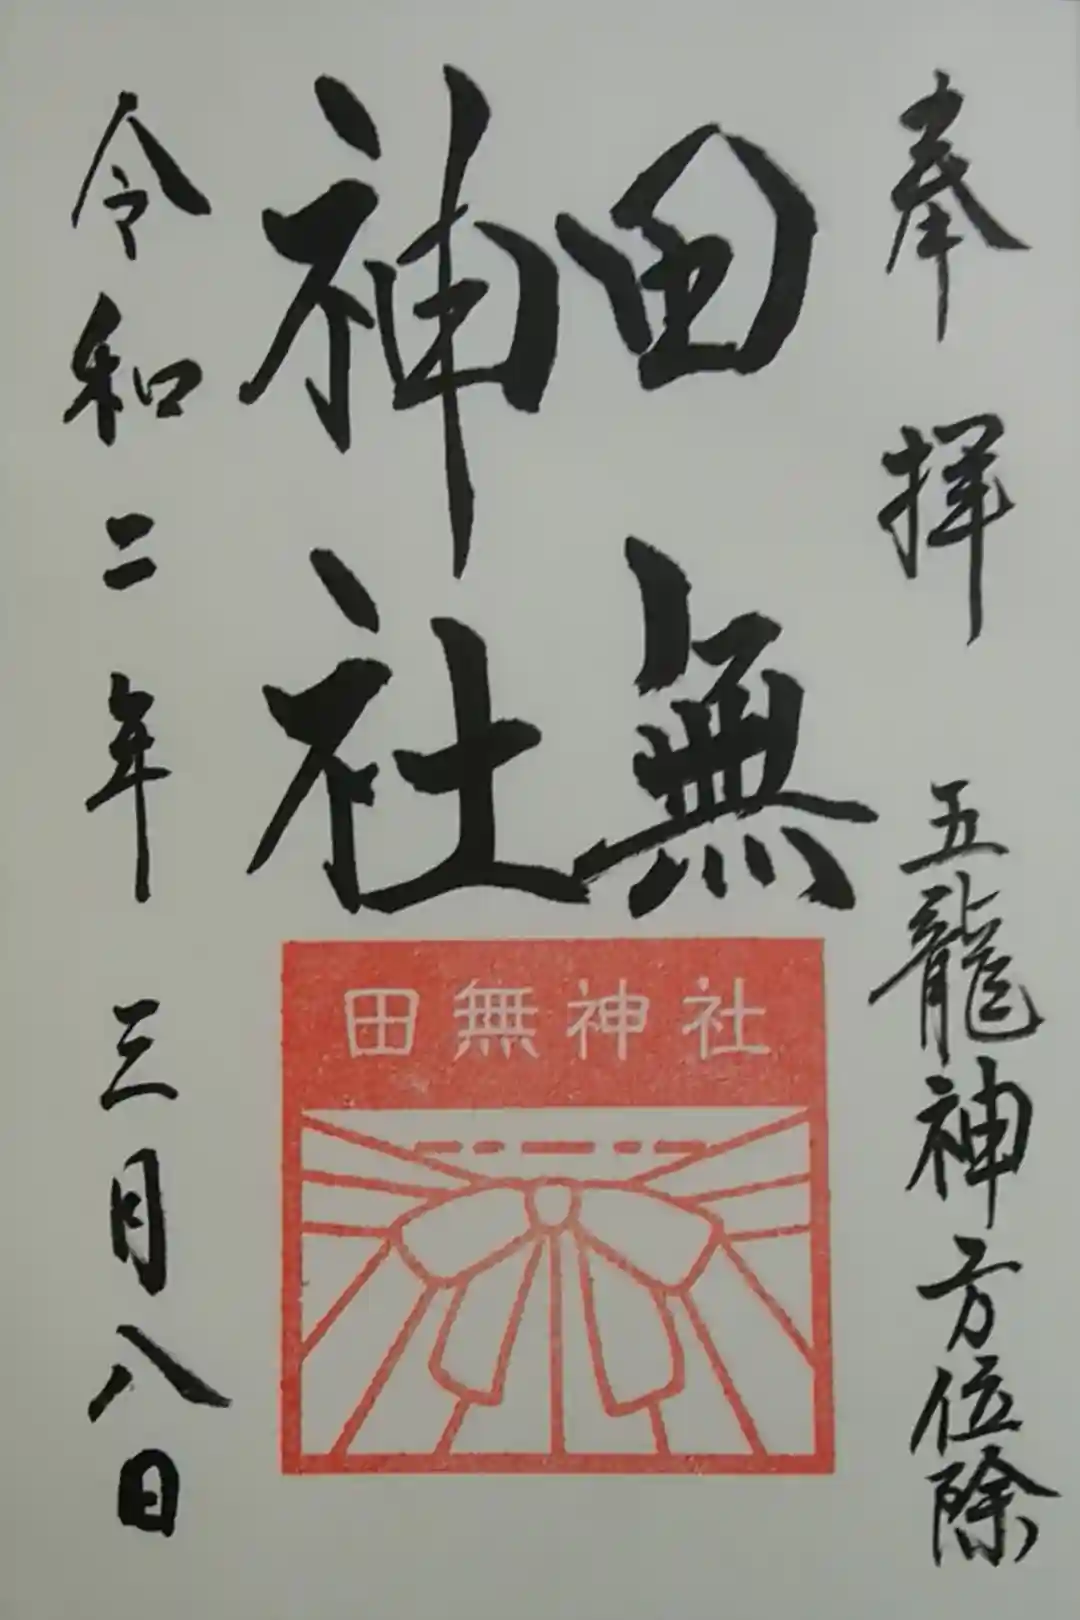 奉拝
五龍神方位除
田無
神社
令和二年三月八日
田無神社